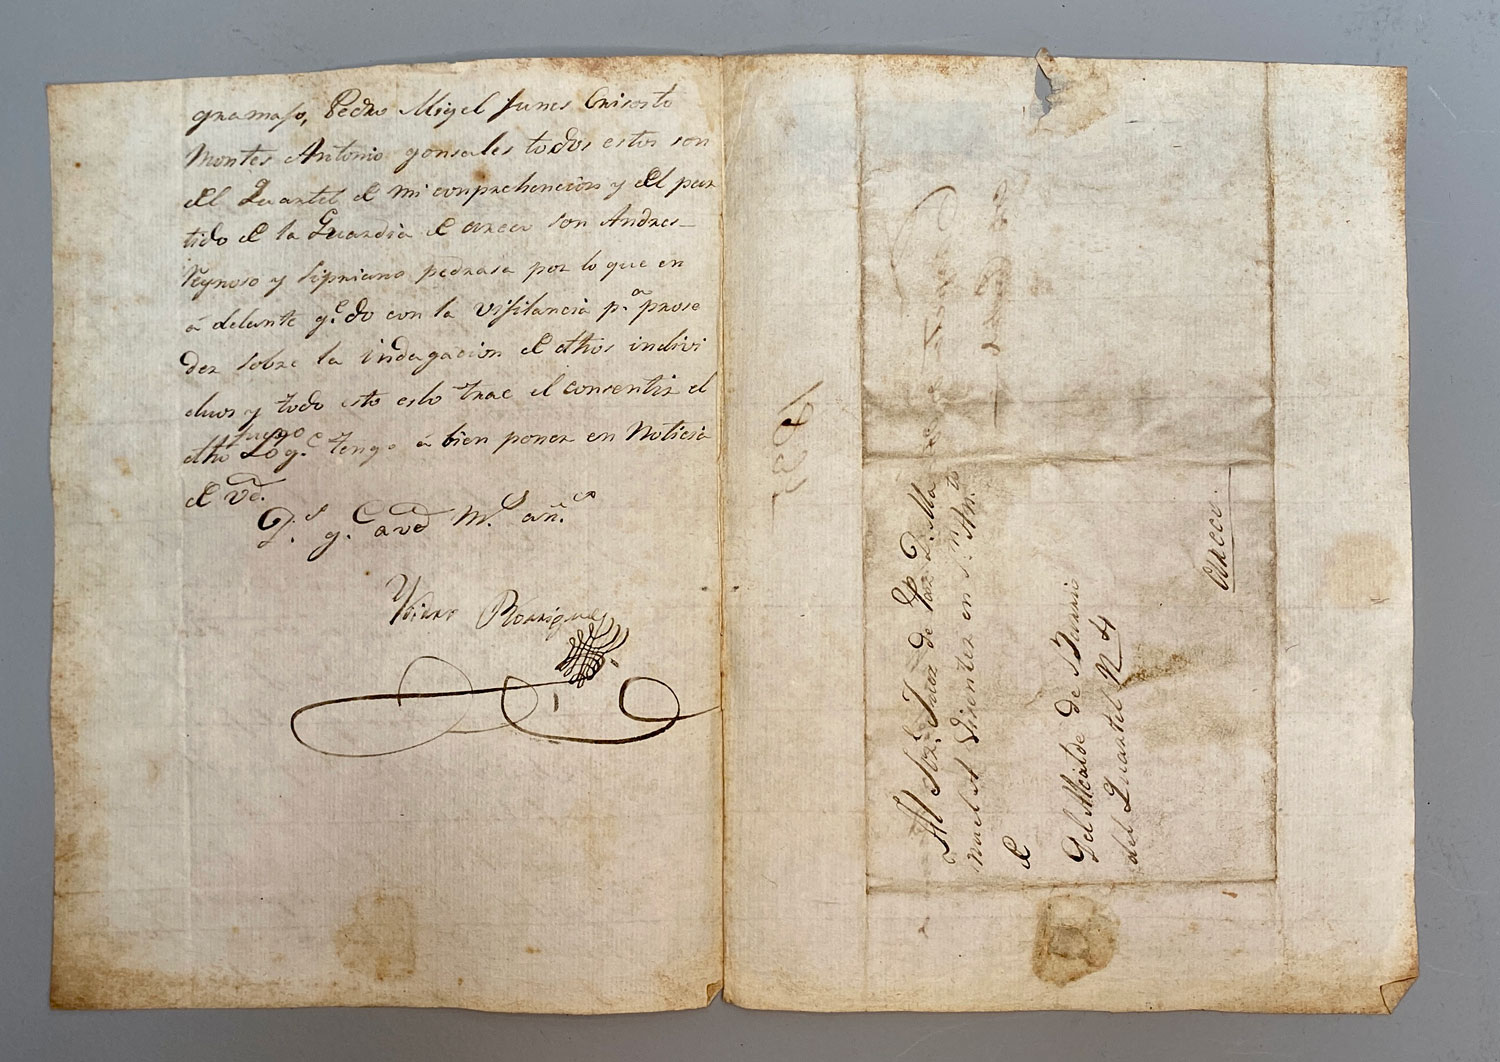 gramajo, Pedro Migel funes Crisosto
Montes Antonio gonsales todos estos son
del Quartel de mi conprehencion y del par
tido de la Guardia de areco son Andres
Reynoso y Sipriano pedrasa por lo que en
á delante q.e do con la vijilancia p.a prose
der sobre la indagacion de dhos indivi
duos y todo esto eslo trae el consentir el
dho Juego
Lo q.e tengo á bien poner en Noticia
de Vd.
D.s g.e a vd m.s añ.s
Rodrigues
1831
Al Sor. Juez de Paz D. Ma
nuel A in S.n An.to
de
Areco.
Del Alcalde de Barrio
del Quartel N 4